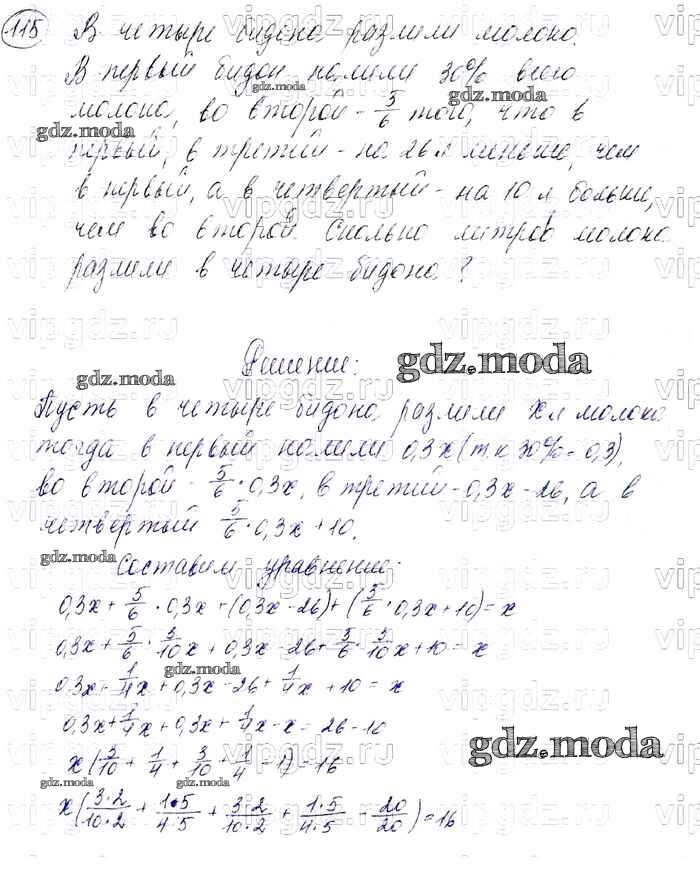 115 В четыре бидона разлили молоко.
В первый бидон налили 30% всего
молока, во второй - 5/6 того, что в
gdz.moda
gdz.moda
первый, в третий - на 26 л меньше, чем
в первый, а в четвертый - на 10 л больше,
чем во второй. Сколько литров молока
разлили в четыре бидона?
Решение:
gdz.moda
gdz.moda
Пусть в четыре бидона разлили x л молока
тогда в первый налили 0,3x (т к 30% = 0,3),
во второй - 5/6 · 0,3x, в третий - 0,3x - 26, а в
четвертый 5/6 · 0,3x + 10.
gdz.moda
Составим уравнение:
0,3x + 5/6 · 0,3x + (0,3x - 26) + (5/6 · 0,3x + 10) = x
0,3x + 5/6 · 3/10 x + 0,3x - 26 + 5/6 · 3/10 x + 10 = x
gdz.moda
0,3x + 1/4 x + 0,3x - 26 + 1/4 x + 10 = x
0,3x + 1/4 x + 0,3x + 1/4 x - x = 26 - 10
gdz.moda
x (3/10 + 1/4 + 3/10 + 1/4 - 1) = 16
gdz.moda
gdz.moda
x (3·2/10·2 + 1·5/4·5 + 3·2/10·2 + 1·5/4·5 - 20/20) = 16
vipgdz.ru